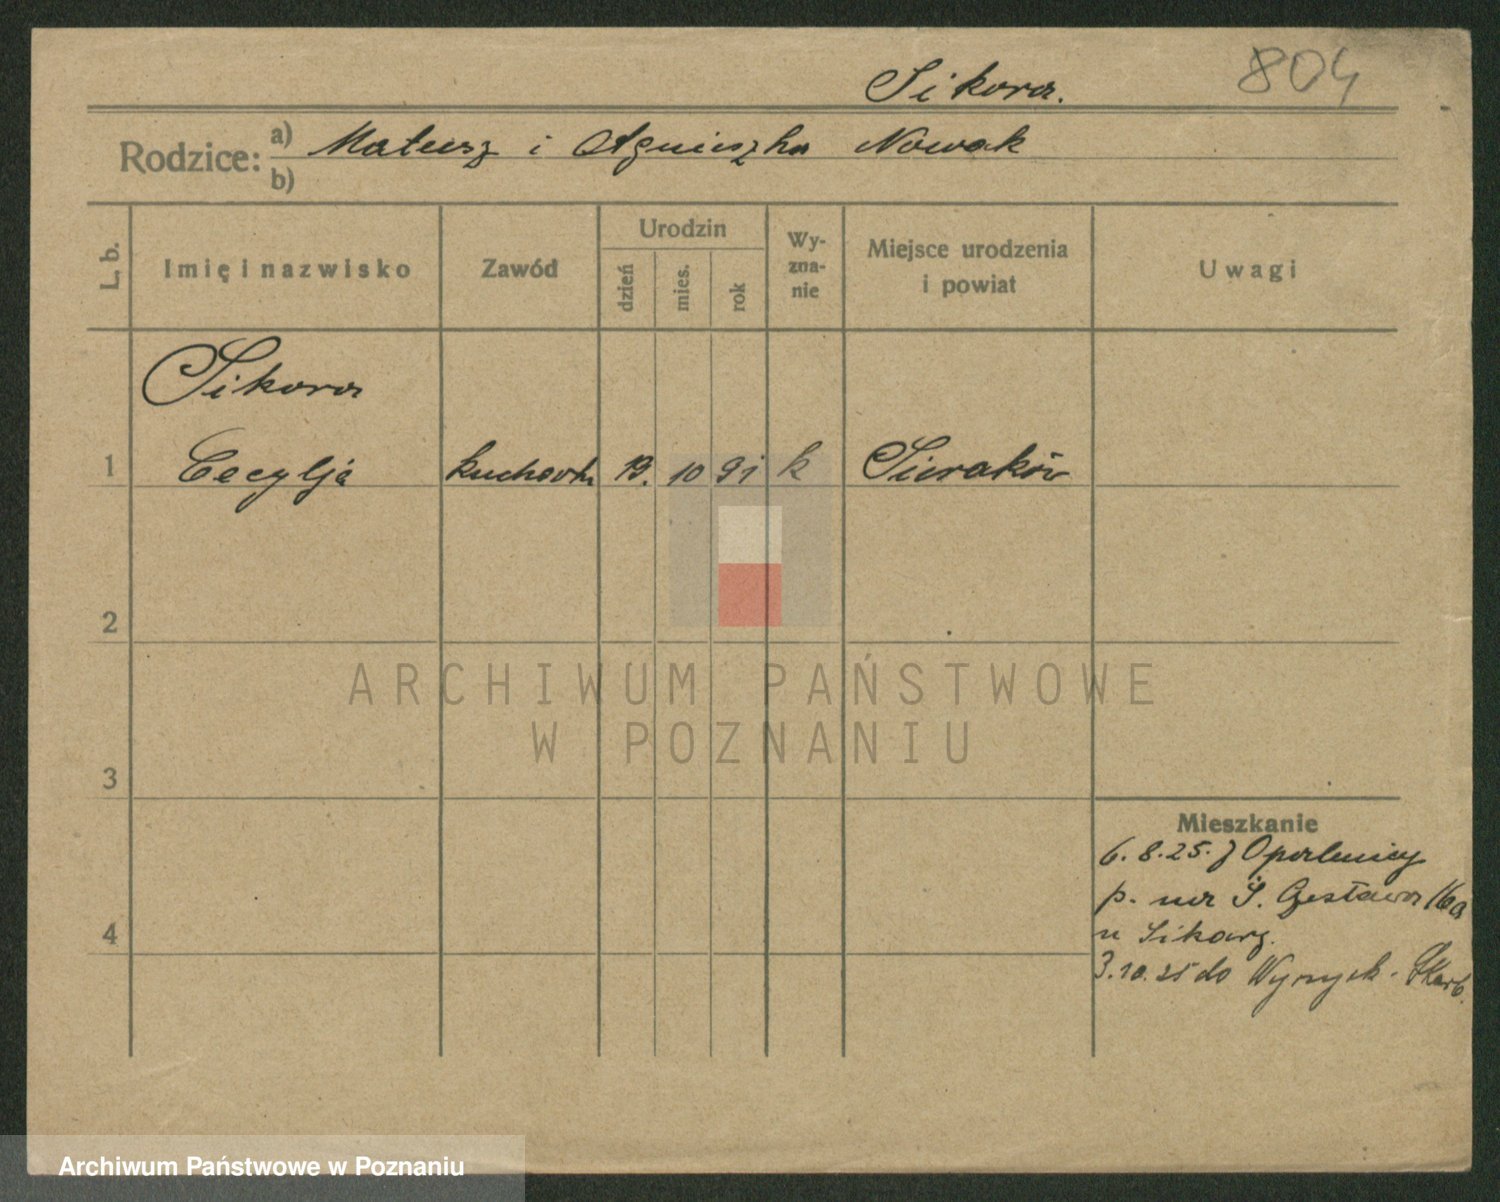 Sikora.
804
Rodzice: a) Mateusz i Agnieszka Nowak
b)
L. b.
Imię i nazwisko
Zawód
Urodzin
dzień
mies.
rok
Wy-
zna-
nie
Miejsce urodzenia
i powiat
Uwagi
Sikora
1 Cecylja kucharka 19. 10 91 k Sieraków
2
ARCHIWUM PAŃSTWOWE
W POZNANIU
3
Mieszkanie
6.8.25. z Opalenicy
p. na Ś. Czesława 16a
u Sikory.
4
3.10.25 do Wyrzysk.
Archiwum Państwowe w Poznaniu